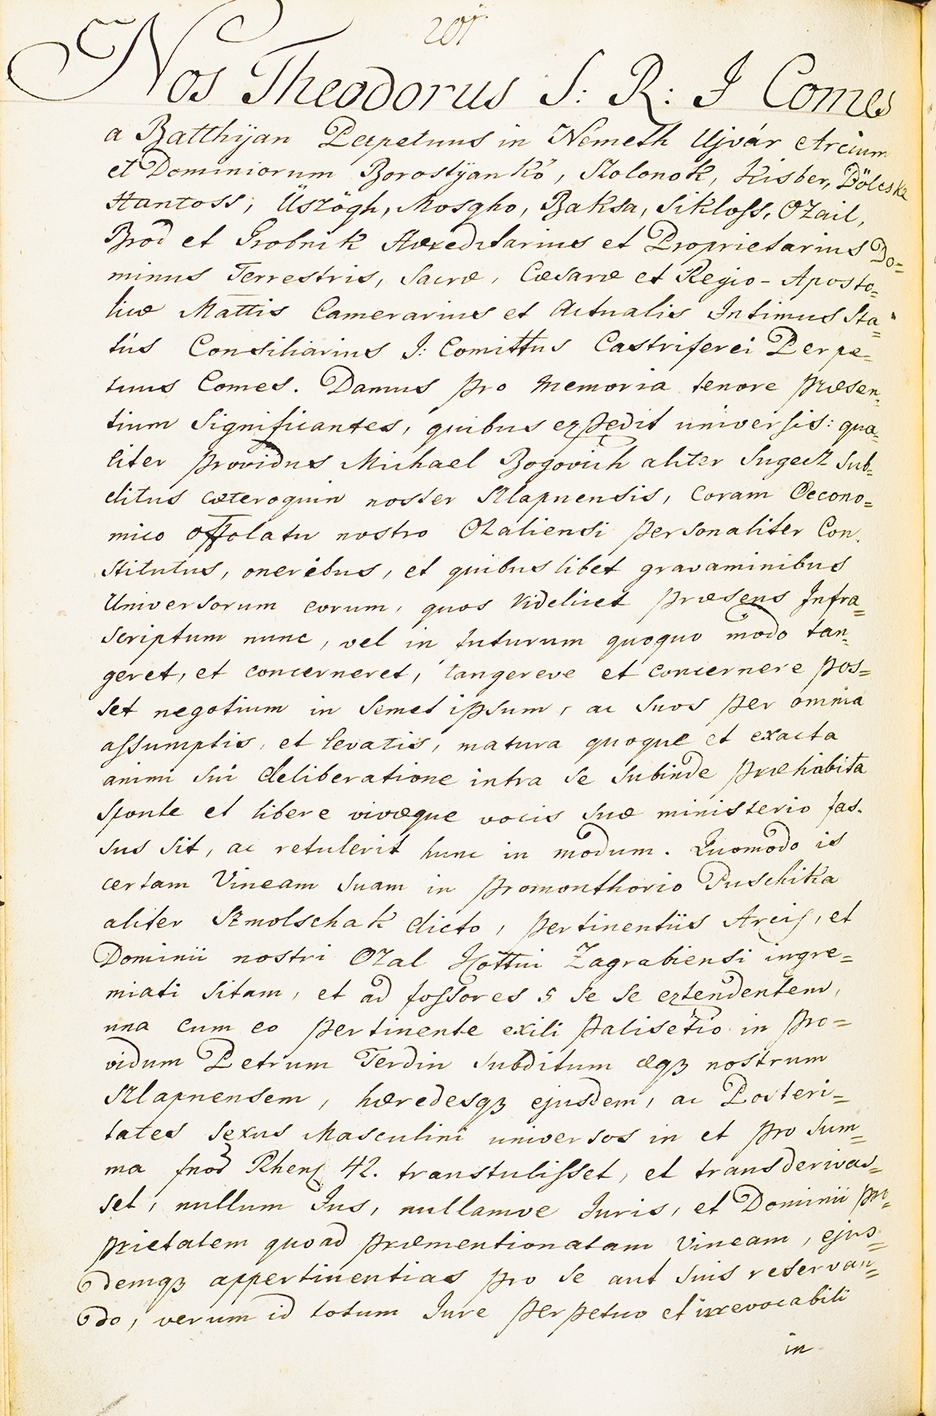 201
Nos Theodorus S: R: I Comes
a Batthÿan Perpetuus in Németh Ujvár Arcium
et Dominiorum Borostÿankő, Szolonok, Kisber, Bölcske
Hantoss, Üszögh, Mosgho, Baksa, Sikloss, Ozail,
Brod et Grobnik Hæreditarius et Proprietarius Do=
minus Terrestris, Sacræ, Cæsareæ et Regio-Aposto=
licæ Mattis Camerarius et Actualis Intimus Sta=
tús Consiliarius I: Comittus Castriferei Perpe=
tuus Comes. Damus pro memoria tenore præsen=
tium Significantes, quibus expedit universis: qua=
liter providus Michael Bogovich aliter Sugecz Sub=
ditus cæteroquin noster Szlapnensis, coram Oecono=
mico offolatu nostro Ozaliensi personaliter Con
stitutus, oneribus, et quibuslibet gravaminibus
Universorum eorum, quos videlicet præsens Infra=
scriptum nunc, vel in futurum quoquo modo tan=
geret, et concerneret, tangereve et concernere pos=
set negotium in semet ipsum, ac suos per omnia
assumptis, et levatis, matura quoque et exacta
animi sui deliberatione intra se subinde præhabita
sponte et libere vivæque vocis suæ ministerio fas=
sus sit, ac retulerit hunc in modum. Quomodo is
certam Vineam suam in promonthorio Puschitza
aliter Szmolschak dicto, pertinentiis Arcis, et
Dominii nostri Ozal Kottui Zagrabiensi ingre=
miati sitam, et ad fossores 5 se se extendentem,
una cum eo pertinente exili palisetio in pro=
vidum Petrum Terdin subditum æqz nostrum
Szlapnensem, hæredesqz ejusdem, ac Posteri=
tates sexus Masculini universos in et pro sum=
ma fnod Rhenz 42. transtulisset, et transderivas=
set, nullum Jus, nullamve Juris, et Dominii pro=
prietatem quoad præmentionatam Vineam, ejus=
demqz appertinentias pro se aut suis reservan=
do, verum id totum Jure perpetuo et irrevocabili
in